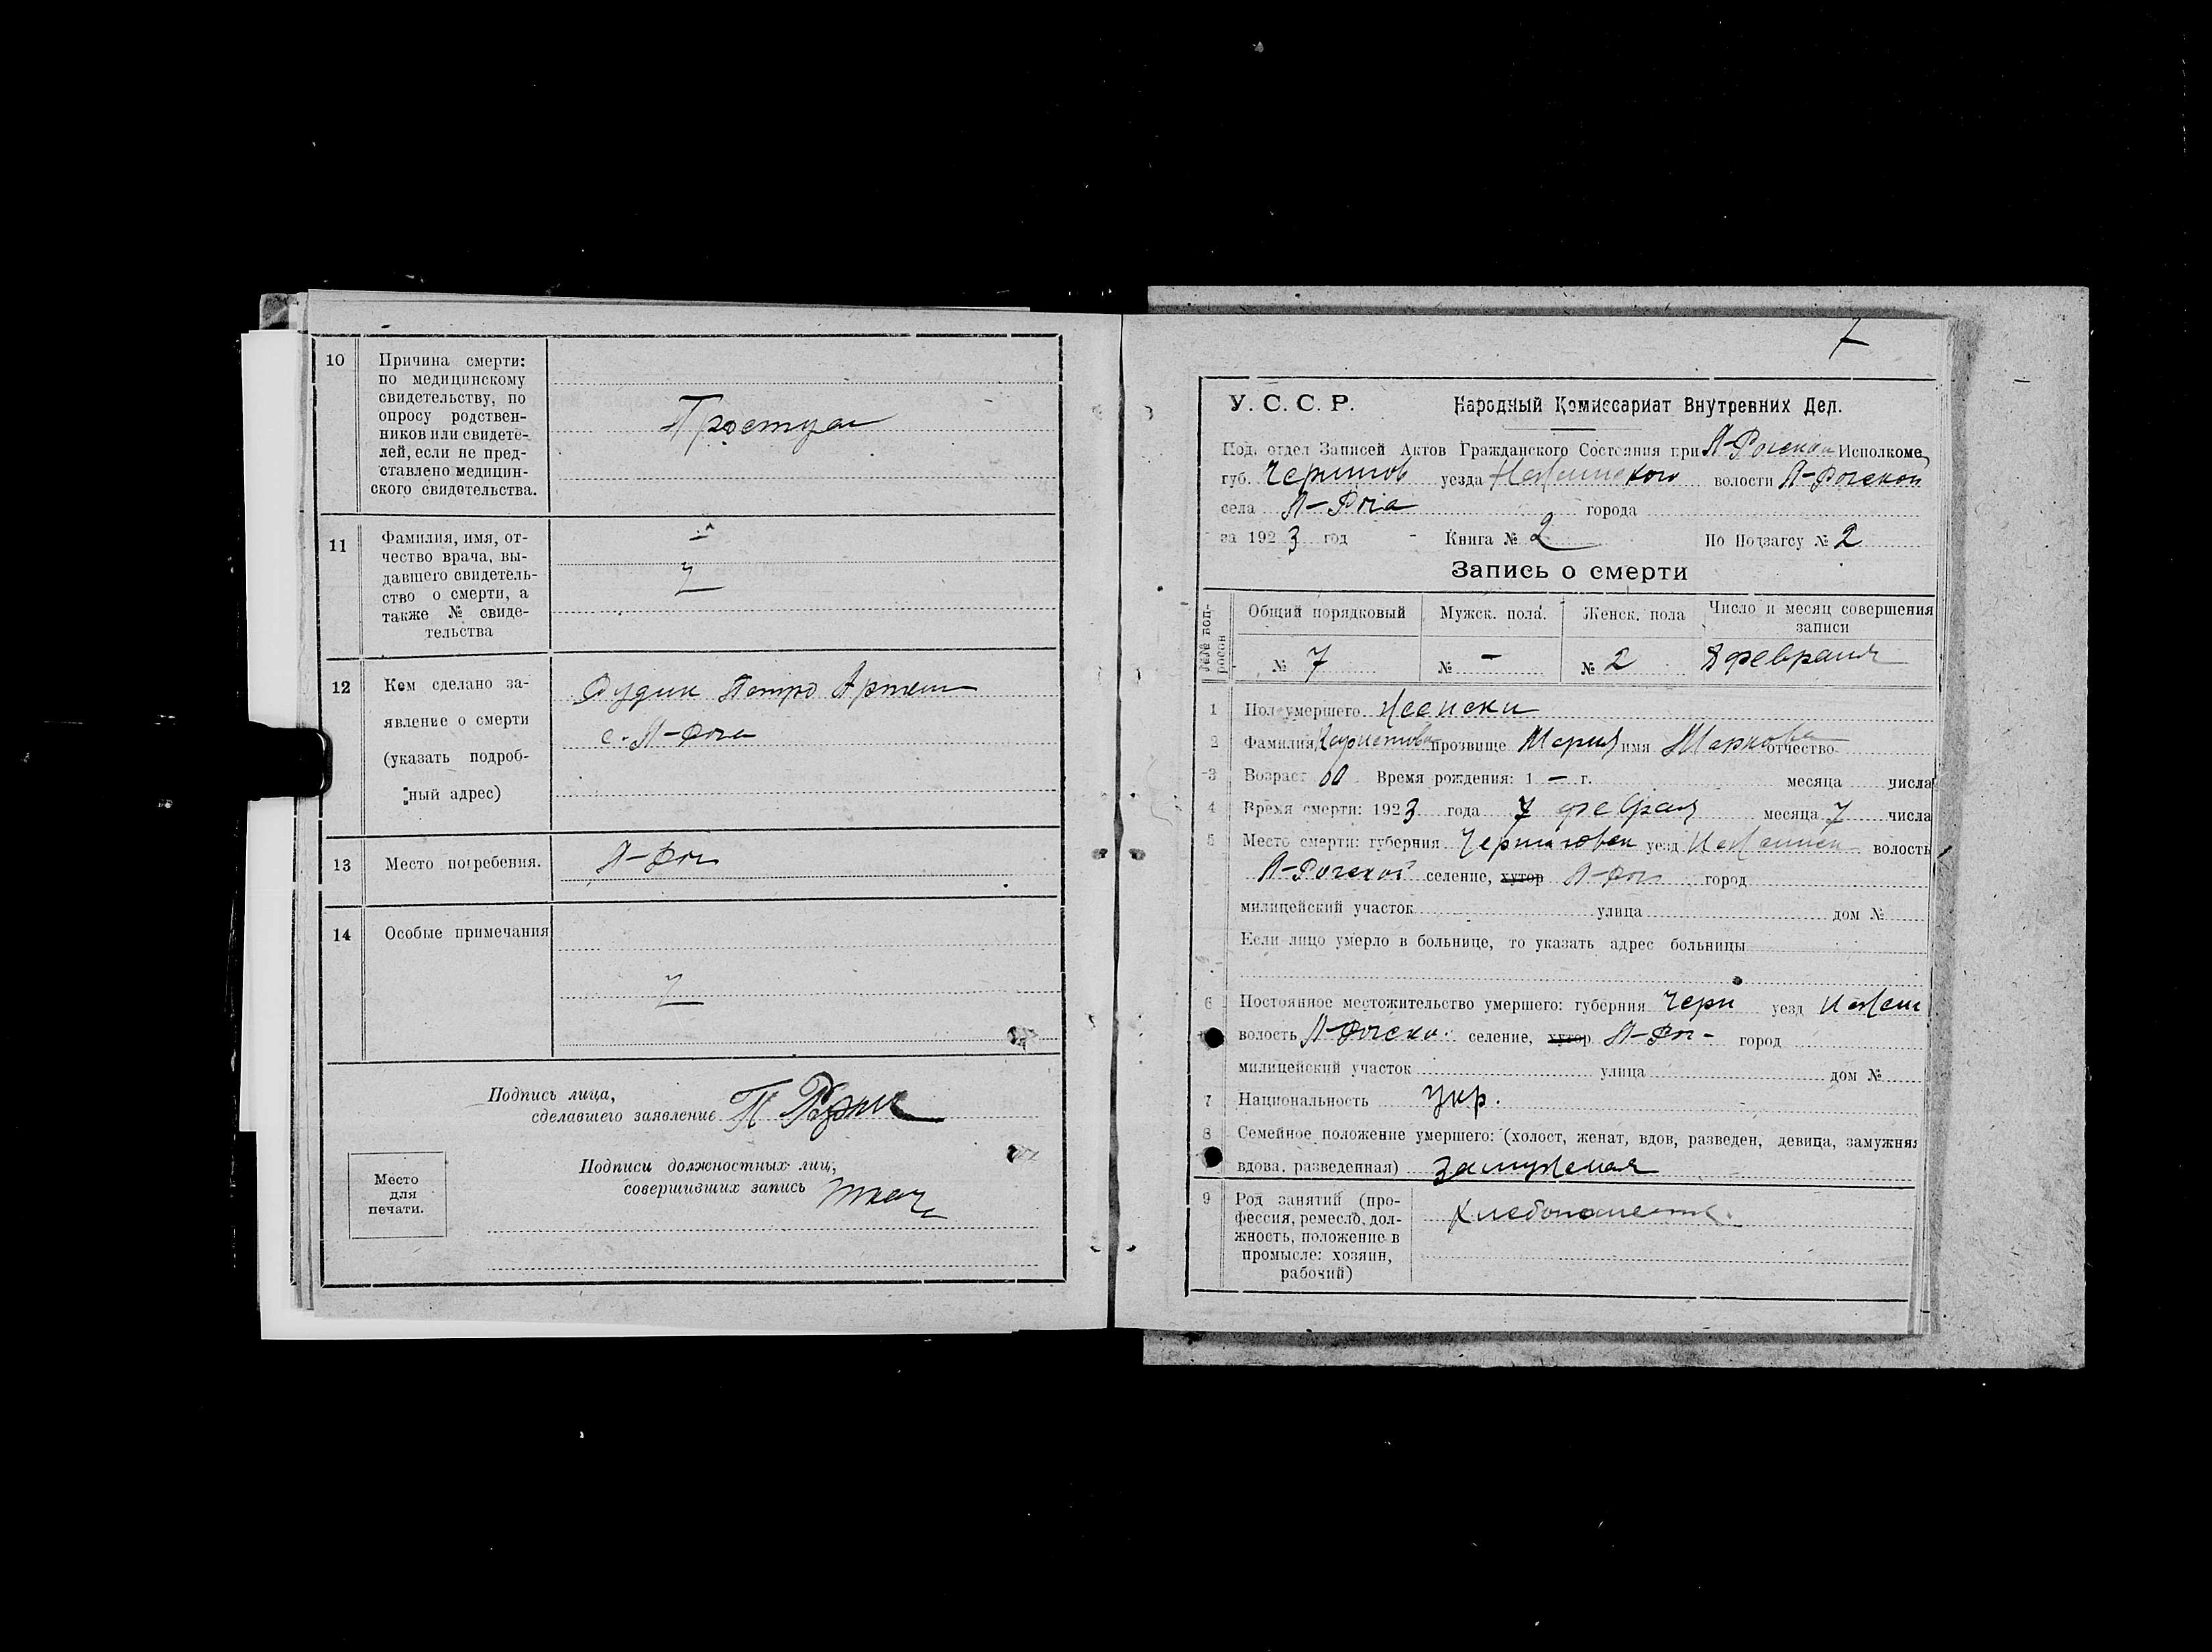 10 Причина смерти:
по медицинскому
свидетельству, по
опросу родствен-
ников или свидете-
лей, если не пред-
ставлено медицин-
ского свидетельства.
Простуда
11 Фамилия, имя, от-
чество врача, вы-
давшего свидетель-
ство о смерти, а
также № свиде-
тельства
12 Кем сделано за-
явление о смерти
(указать подроб-
ный адрес)
Петро Артем
с. Л-Рога
13 Место погребения. Л-Рог
14 Особые примечания
Подпись лица,
сделавшего заявление П
Подписи должностных лиц,
совершивших запись Ткач
Место
для
печати.
7
У. С. С. Р. Народный Комиссариат Внутренних Дел.
Под. отдел Записей Актов Гражданского Состояния при Л-Рогском Исполкоме,
губ. Чернигов уезда Нежинского волости Л-Рогской
села Л-Рога города
за 1923 год - Книга № 2 По Подзагсу № 2
Запись о смерти
№№ воп-
росов
Общий порядковый Мужск. пола. Женск. пола Число и месяц совершения
записи
№ 7 № - № 2 8 февраля
1 Пол умершего Женски
2 Фамилия прозвище Мария имя Маркова отчество
3 Возраст 60 Время рождения: 1 - г. месяца числа
4 Время смерти: 1923 года 7 феврал месяца 7 числа
5 Место смерти: губерния Черниговск уезд Нежинск волость
Л-Рогской селение, хутор Л-Рог город
милицейский участок улица дом №
Если лицо умерло в больнице, то указать адрес больницы
6 Постоянное местожительство умершего: губерния Черн уезд Нежин
волость Л-Рогско. селение, хутор Л-Рог- город
милицейский участок улица дом №
7 Национальность Укр.
8 Семейное положение умершего: (холост, женат, вдов, разведен, девица, замужняя
вдова, разведенная) замужемая
9 Род занятий (про-
фессия, ремесло, дол-
жность, положение в
промысле: хозяин,
рабочий)
Хлебопашеств.